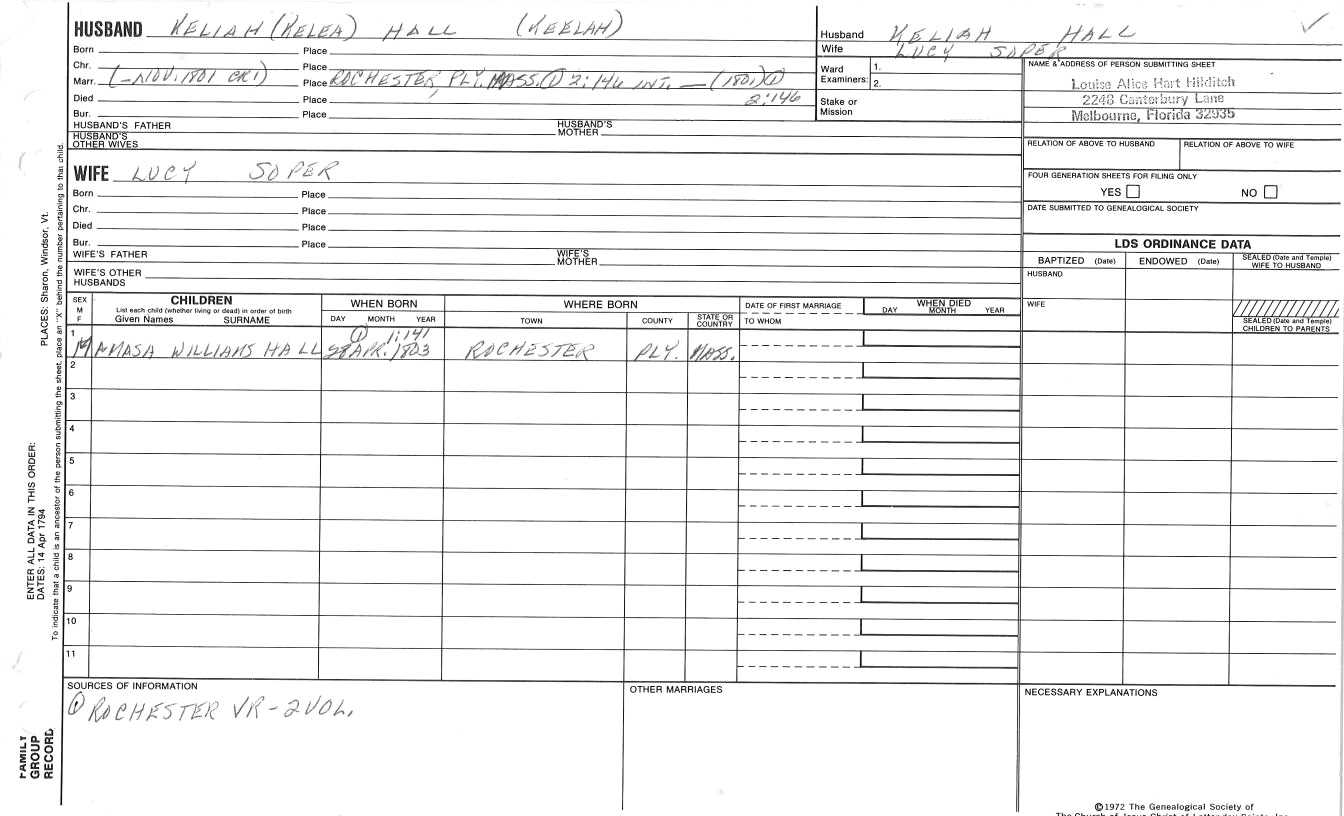 HUSBAND KELIAH (KELEA) HALL (KEELAH)
Born Place
Chr. Place
Marr. (-NOV. 1801 CR1) Place ROCHESTER, PLY. MASS. ① 2:146 INT. — (1801) ①
2:146
Died Place
Bur. Place
HUSBAND'S FATHER HUSBAND'S MOTHER
HUSBAND'S OTHER WIVES
Husband KELIAH HALL
Wife LUCY SOPER
Ward Examiners: 1.
2.
Stake or Mission
NAME & ADDRESS OF PERSON SUBMITTING SHEET
Louise Alice Hart Hilditch
2248 Canterbury Lane
Melbourne, Florida 32935
RELATION OF ABOVE TO HUSBAND RELATION OF ABOVE TO WIFE
FOUR GENERATION SHEETS FOR FILING ONLY
YES NO
DATE SUBMITTED TO GENEALOGICAL SOCIETY
WIFE LUCY SOPER
Born Place
Chr. Place
Died Place
Bur. Place
WIFE'S FATHER WIFE'S MOTHER
WIFE'S OTHER HUSBANDS
LDS ORDINANCE DATA
BAPTIZED (Date) ENDOWED (Date) SEALED (Date and Temple) WIFE TO HUSBAND
HUSBAND
WIFE
SEALED (Date and Temple) CHILDREN TO PARENTS
SEX M F
CHILDREN
List each child (whether living or dead) in order of birth
Given Names SURNAME
WHEN BORN
DAY MONTH YEAR
WHERE BORN
TOWN COUNTY STATE OR COUNTRY
DATE OF FIRST MARRIAGE
TO WHOM
WHEN DIED
DAY MONTH YEAR
① 1:141
1 M AMASA WILLIAMS HALL 28 APR. 1803 ROCHESTER PLY. MASS.
2
3
4
5
6
7
8
9
10
11
SOURCES OF INFORMATION
① ROCHESTER VR-2VOL.
OTHER MARRIAGES
NECESSARY EXPLANATIONS
©1972 The Genealogical Society of
The Church of Jesus Christ of Latter-day Saints, Inc.
PLACES: Sharon, Windsor, Vt.
ENTER ALL DATA IN THIS ORDER:
DATES: 14 Apr 1794
To indicate that a child is an ancestor of the person submitting the sheet, place an "X" behind the number pertaining to that child.
FAMILY
GROUP
RECORD